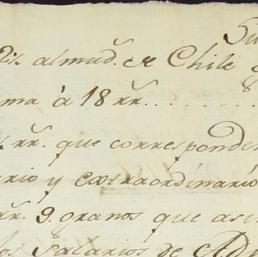 Su
2½ almud.s de Chile
ma à 18 rr.
rr. que corresponden
rio y extraordinario
rr. 9. granos que asi
los salarios de Adm